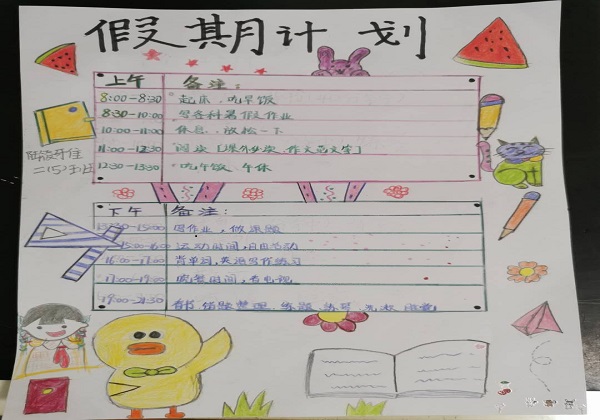 假期计划
上午 备注:
8:00-8:30 起床、吃早饭
8:30-10:00 写各科暑假作业
10:00-11:00 休息、放松一下
11:00-12:30 阅读【课外必读、作文范文等】
12:30-13:30 吃午饭、午休
二(5)
下午 备注:
13:30-15:00 写作业,做
15:00-16:00 运动时间,自由活动
16:00-17:00 背单词,英语写作练习
17:00-19:00 晚餐时间,看电视
19:00-21:30 错题整理、练题、练习、洗漱、睡觉